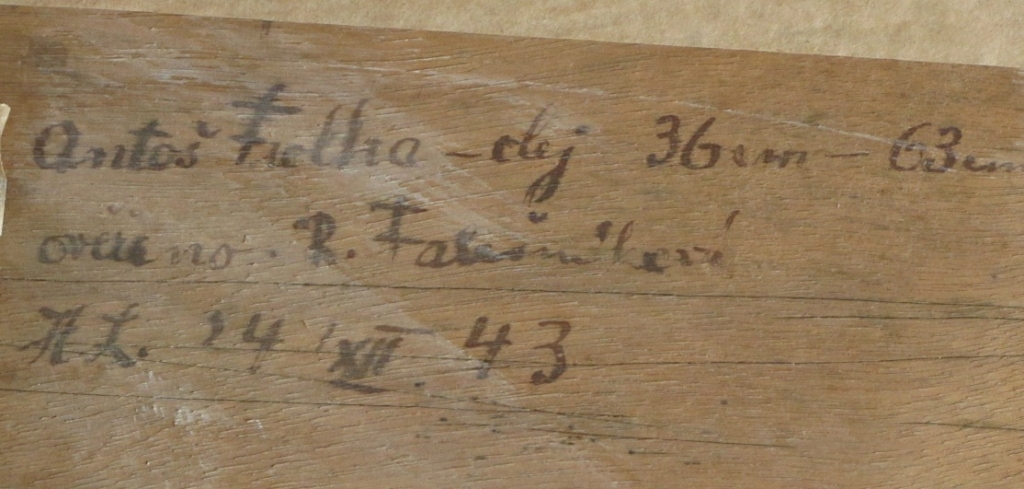 Antoš Fulha - olej 36 cm - 63 cm
ověřeno. R. Farešníková
24 XII. 43